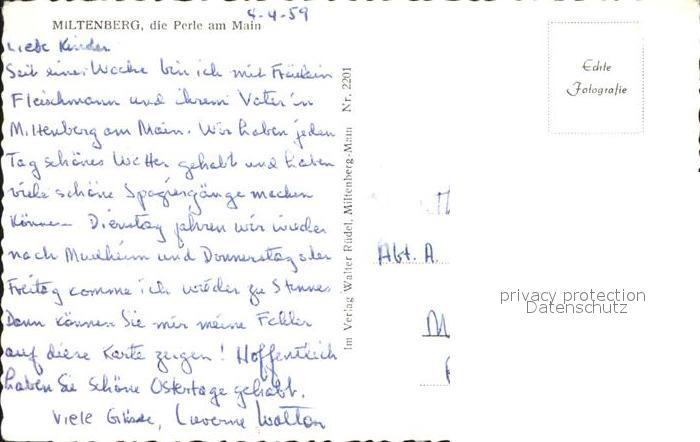 4-4-59
MILTENBERG, die Perle am Main
Liebe Kinder
Seit einer Woche bin ich mit Fräulein
Fleischmann und ihrem Vater in
Miltenberg am Main. Wir haben jeden
Tag schönes Wetter gehabt und haben
viele schöne Spaziergänge machen
können. Dienstag fahren wir wieder
nach Muelheim und Donnerstag oder
Freitag komme ich wieder zu Stinnes
Dann können Sie mir meine Fehler
auf diese Karte zeigen! Hoffentlich
haben Sie schöne Ostertage gehabt.
Viele Grüsse, Laverne Walton
Im Verlag Walter Rüdel, Miltenberg-Main Nr. 2201
Echte
Fotografie
Abt. A.
M
privacy protection
Datenschutz